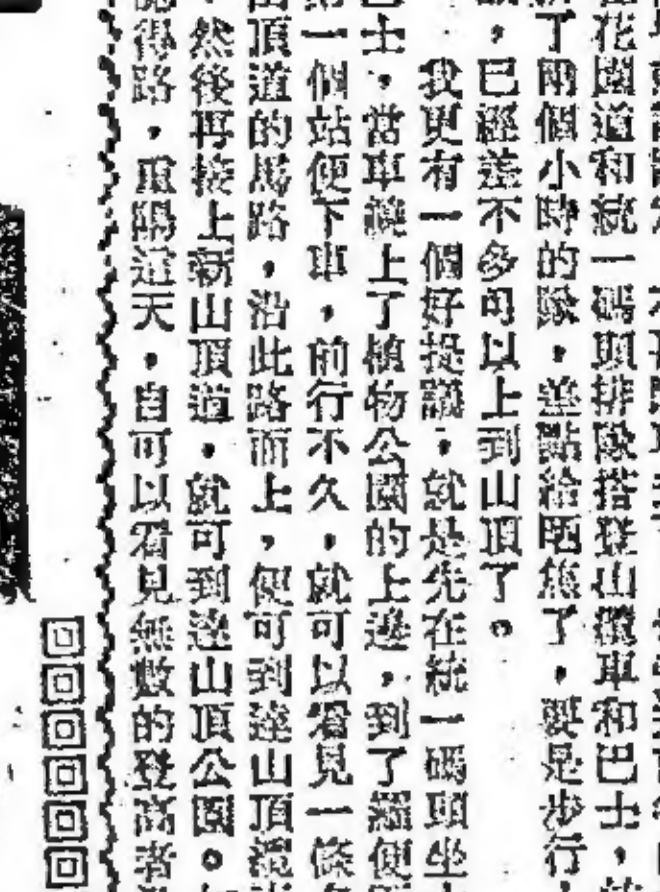 花園道和統一碼頭排隊搭登山纜車和巴士,
了兩個小時的隊,差點給晒焦了,要是步行
,已經差不多可以上到山頂了。
我更有一個好提議,就是先在統一碼頭坐
巴士,當車駛上了植物公園的上邊,到了羅便
第一個站便下車,前行不久,就可以看見一條
山頂道的馬路,沿此路而上,便可到達山頂纜
,然後再接上新山頂道,就可到達山頂公園。
認得路,重陽這天,自可以看見無數的登高者